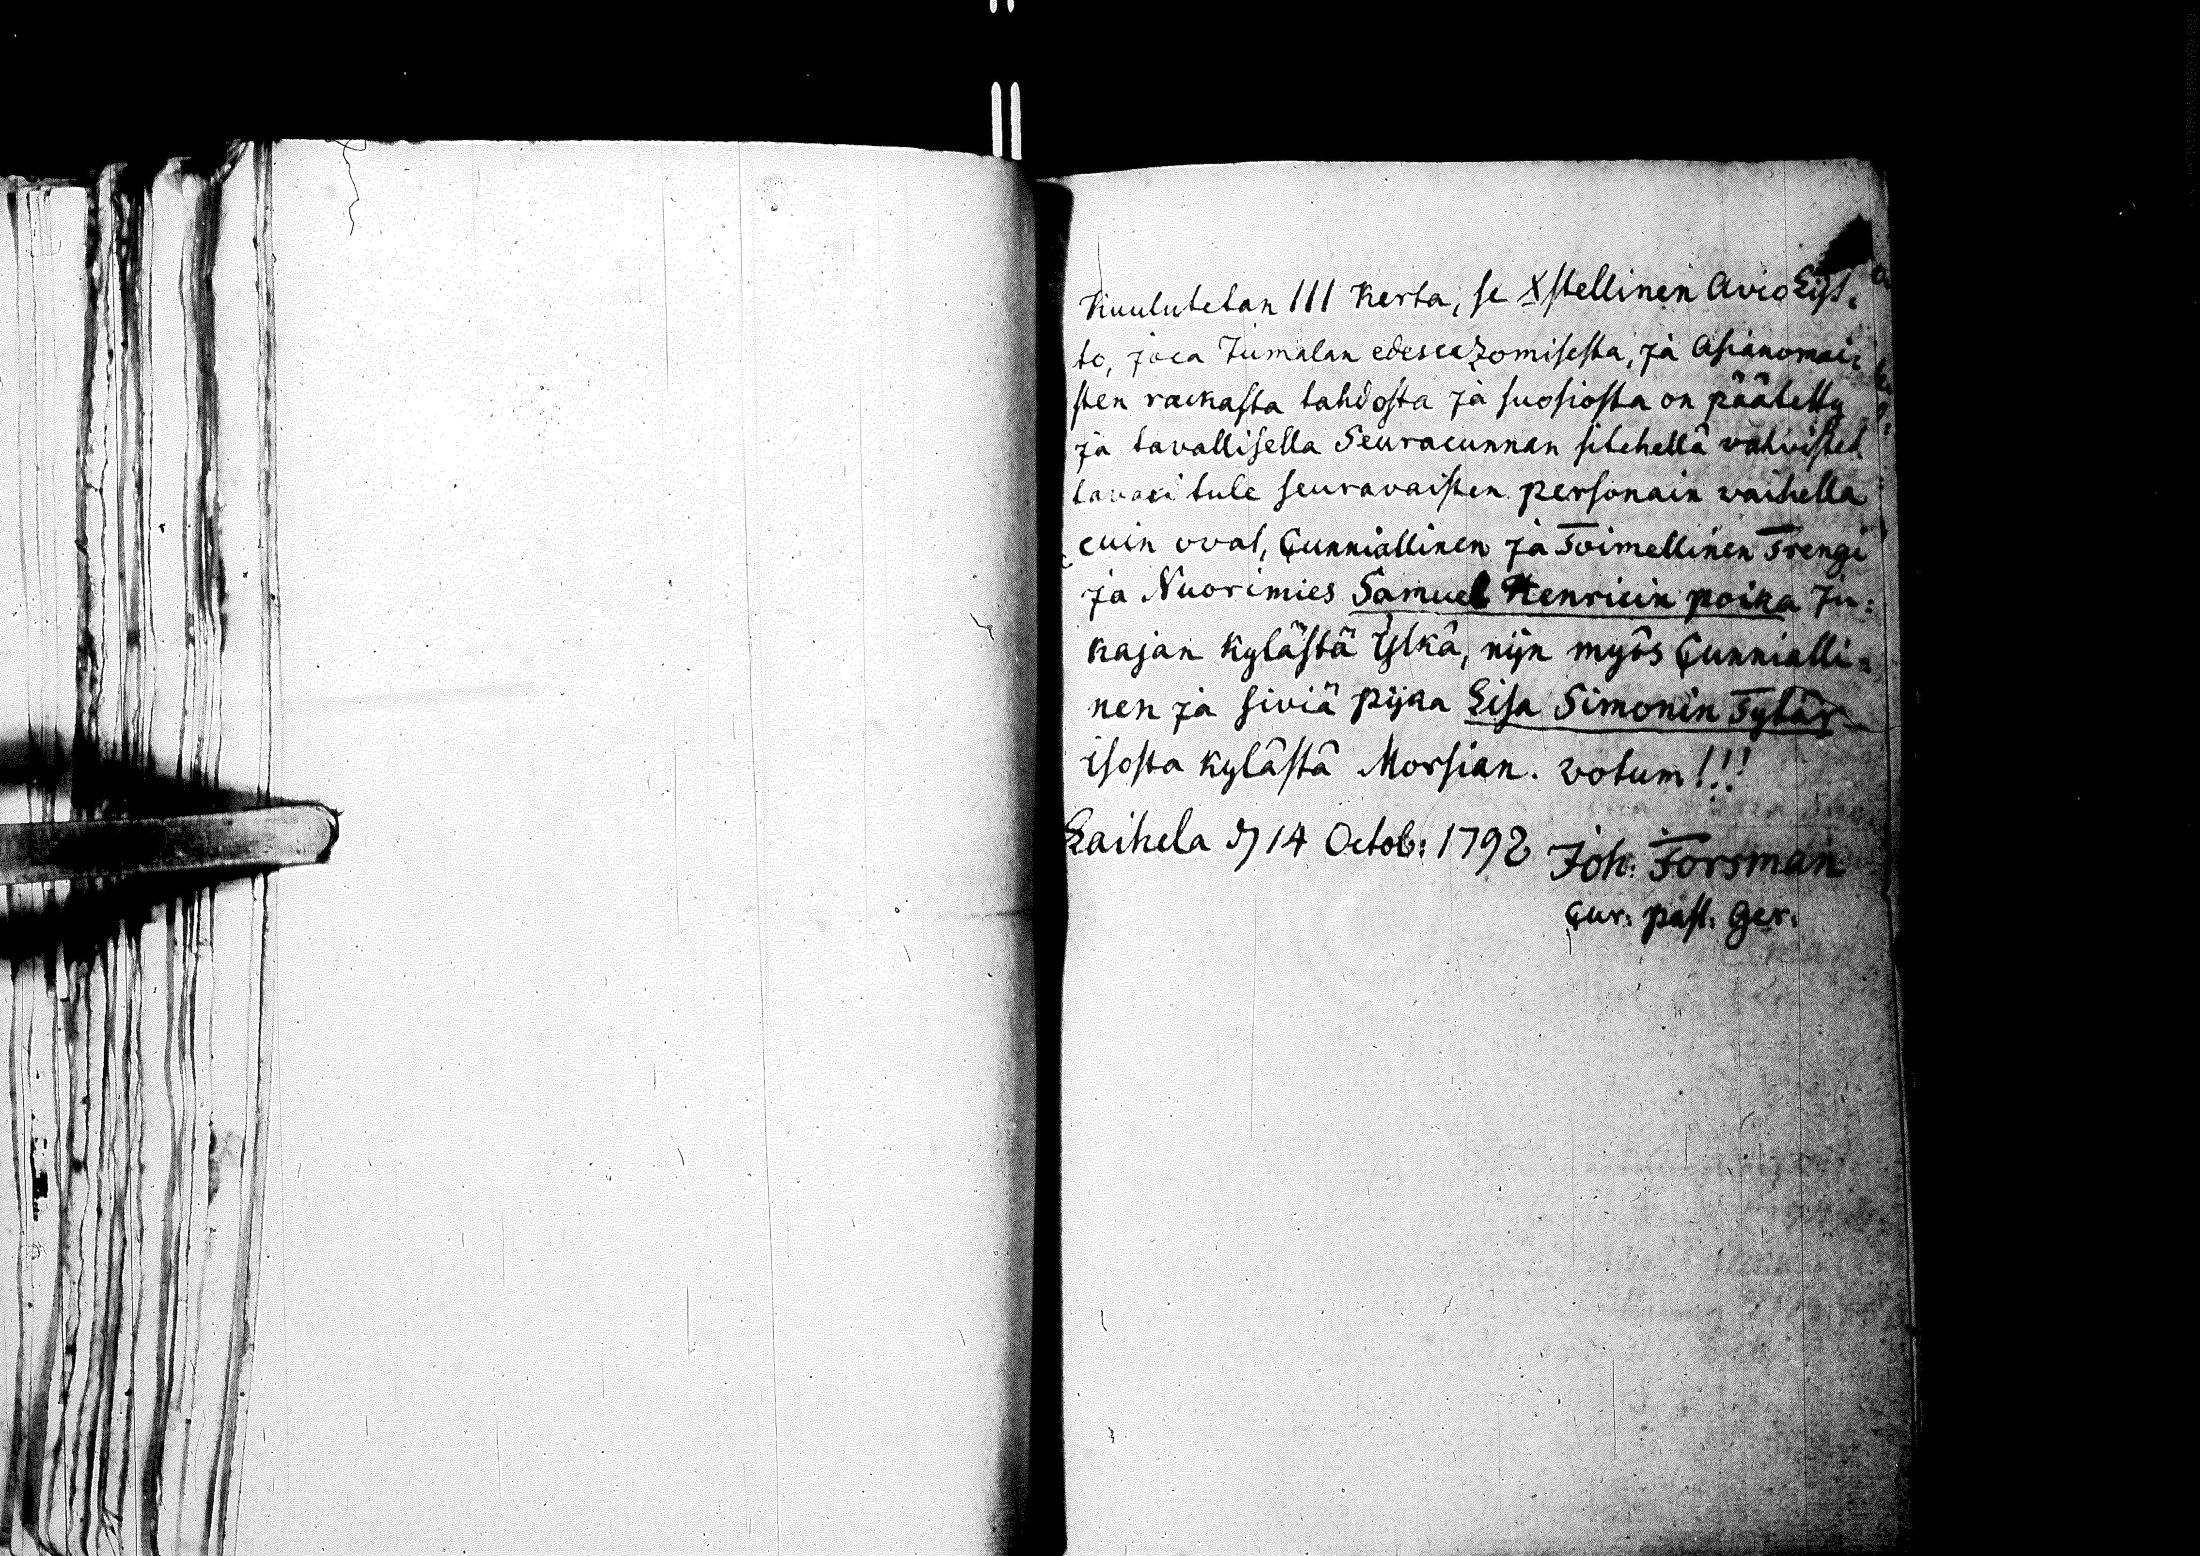 Kuulutetan III Kerta, se Xstellinen Avio Lijt:
to, joca Jumalan edescazomisesta, ja Asianomai:
sten rackasta tahdosta ja suosiosta on päätetty
ja tavallisella Seuracunnan sitehellä vahvistet
tavaxi tule seuravaisten personain vaihella
cuin ovat, Cunniallinen ja Toimellinen Trengi
ja Nuorimies Samuel Henricin poika Ju:
kajan kylästä Ylkä, nijn myös Cunnialli:
nen ja siviä pijka Lisa Simonin Tytär
isosta kylästä Morsian. votum!!!
Laihela d 14 Octob: 1792 Joh: Forsman
Cur: past: Ger: